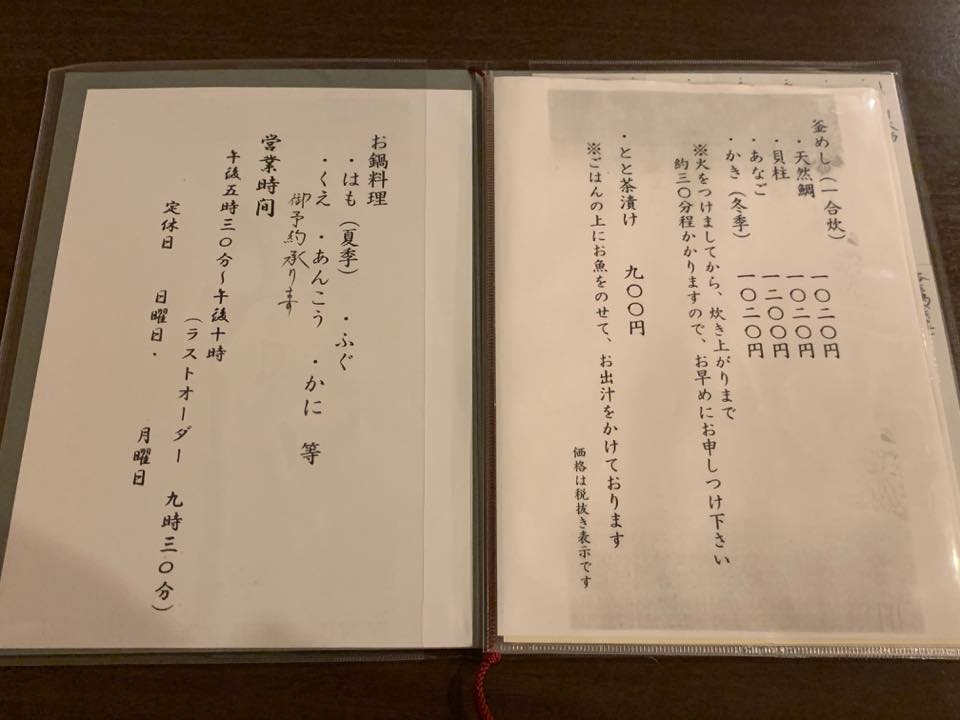 釜めし（一合炊）
・天然鯛 一〇二〇円
・貝柱 一〇二〇円
・あなご 一二〇〇円
・かき（冬季） 一〇二〇円
※火をつけましてから、炊き上がりまで
約三〇分程かかりますので、お早めにお申しつけ下さい
・とと茶漬け 九〇〇円
※ごはんの上にお魚をのせて、お出汁をかけております
価格は税抜き表示です
お鍋料理
・はも（夏季） ・ふぐ
・くえ ・あんこう ・かに 等
御予約承ります
営業時間
午後五時三〇分〜午後十時
（ラストオーダー 九時三〇分）
定休日 日曜日・ 月曜日